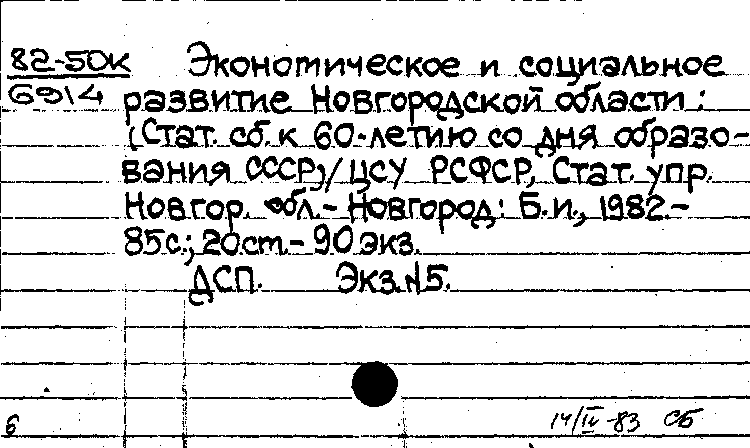 82-50К Экономическое и социальное
6914 развитие Новгородской области :
(Стат. сб. к 60-летию со дня образо-
вания СССР)/ЦСУ РСФСР, Стат. упр.
Новгор. обл.- Новгород: Б.и., 1982.-
85с.; 20см.- 90 экз.
ДСП. Экз.№5.
6 14/IV-83 СБ